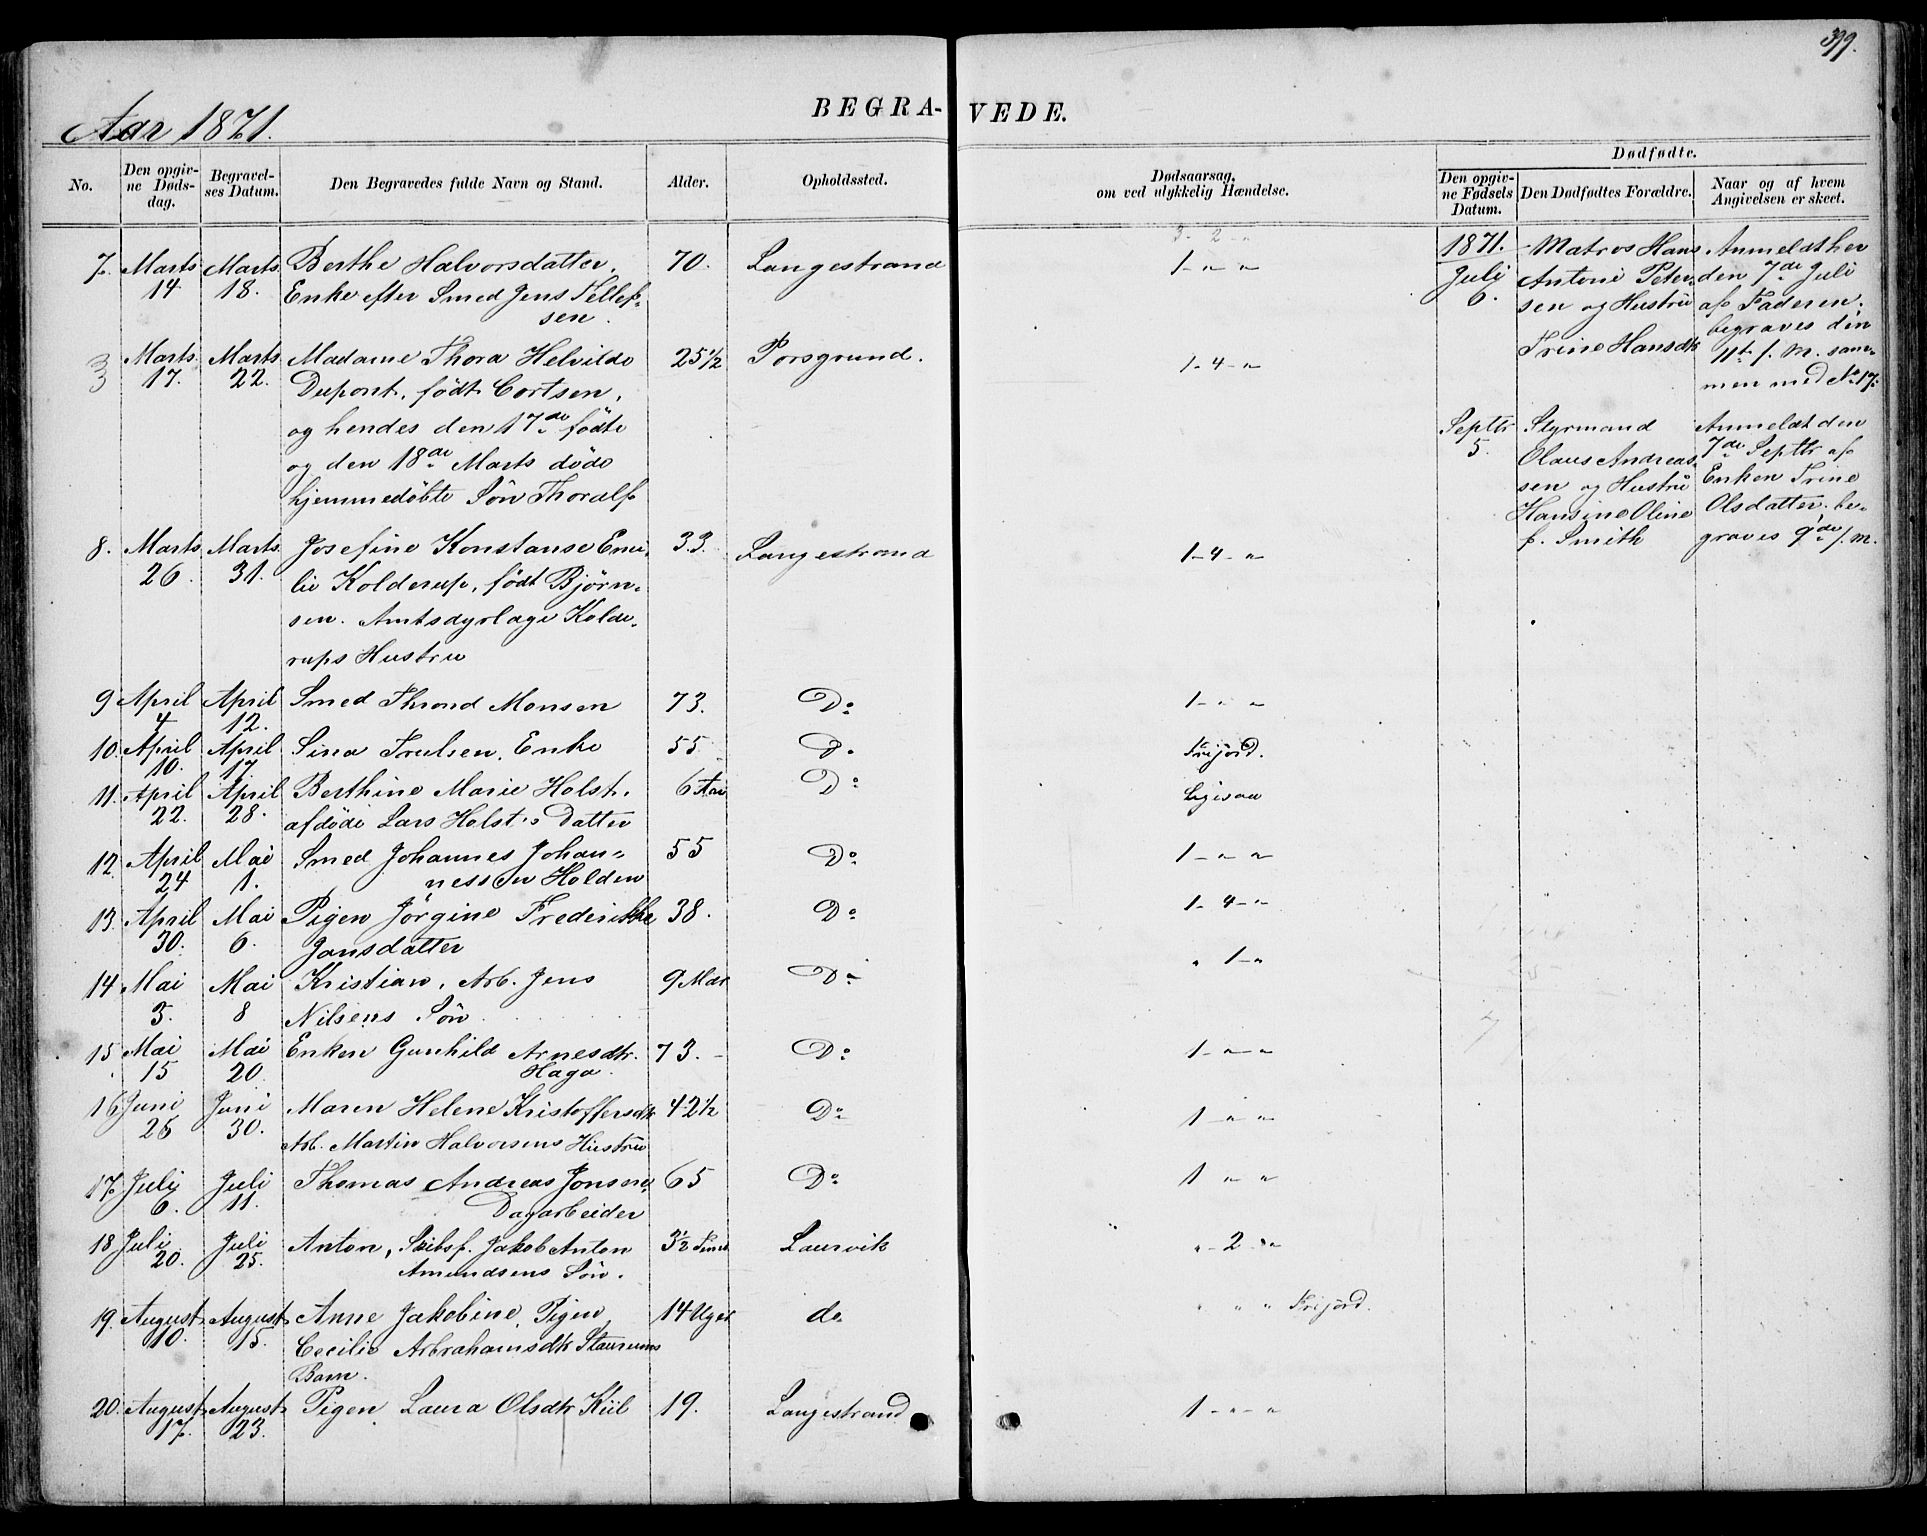 399.
Aar 1871.
BEGRA-VEDE.
No.
Den opgiv-
ne Døds-
dag.
Begravel-
ses Datum.
Den Begravedes fulde Navn og Stand.
Alder.
Opholdssted.
Dødsaarsag,
om ved ulykkelig Hændelse.
Dødfødte.
Den opgiv-
ne Fødsels
Datum.
Den Dødfødtes Forældre.
Naar og af hvem
Angivelsen er skeet.
7. Marts Marts Berthe Halvorsdatter, 70. Langestrand 1 - " - "
14. 18. Enke efter Smed Jens Tellef-
sen.
3 Marts Marts Madame Thora Helvilde 25 1/2 Porsgrund. 1 - 4 - "
17. 22. Dupont, født Cortsen,
og hendes den 17de fødte
og den 18de Marts døde
hjemmedøbte Søn Thoralf
8. Marts Marts Josefine Konstanse Emi- 33. Langestrand 1 - 4 - "
26. 31. lie Kolderup, født Bjørn-
sen. Amtsdyrlæge Kolde-
rups Hustru
9 April April Smed Thrond Monsen 73. Do 1 - " "
4 12.
10. April April Sina Trulsen, Enke 55 D. Frijord.
10. 17
11. April April Berthine Marie Holst, 6 Aar Do Ligesaa
22. 28. afdøde Lars Holst's Datter
12. April Mai Smed Johannes Johan- 55 Do 1 - " "
24 1. nessen Holden
13. April Mai Pigen Jørgine Frederikke 38. Do 1 - 4 - "
30. 6. Jansdatter
14 Mai Mai Kristian, Arb. Jens 9 Mdr Do " 1 - "
3. 8 Nilsens Søn
15 Mai Mai Enken Gunhild Arnesdtr. 73. - Do 1 - " - "
15 20. Haga.
16 Juni Juni Maren Helene Kristoffersdtr 42 1/2 Do 1 - " "
26 30. Arb. Martin Halvorsens Hustru
17. Juli Juli Thomas Andreas Jonsen, 65 Do 1 " "
6. 11. Dagarbeider
18 Juli Juli Anton, Skibsf. Jakob Anton 3 1/2 Laurvik " - 2 - "
20. 25. Amundsens Søn.
19. August August Anne Jakobine, Pigen 14 Uger do " " " Frijord.
10. 15. Cecilie Arbrahamsdtr Staurums
Barn.
20. August August Pigen Laura Olsdtr Kiil 19. Langestrand 1 - " - "
17. 23.
1871.
Juli
6.
Matros Hans
Antoni Peter-
sen og Hustru
Trine Hansdtr
Anmeldt her
den 7de Juli
af Faderen.
begraves den
11te f. M. sam-
men med No 17.
Septbr
5.
Styrmand
Olaus Andreas-
sen og Hustru
Hansine Oline
f. Smith
Anmeldt den
7de Septbr af
Enken Trine
Olsdatter. be-
graves 9de f. M.